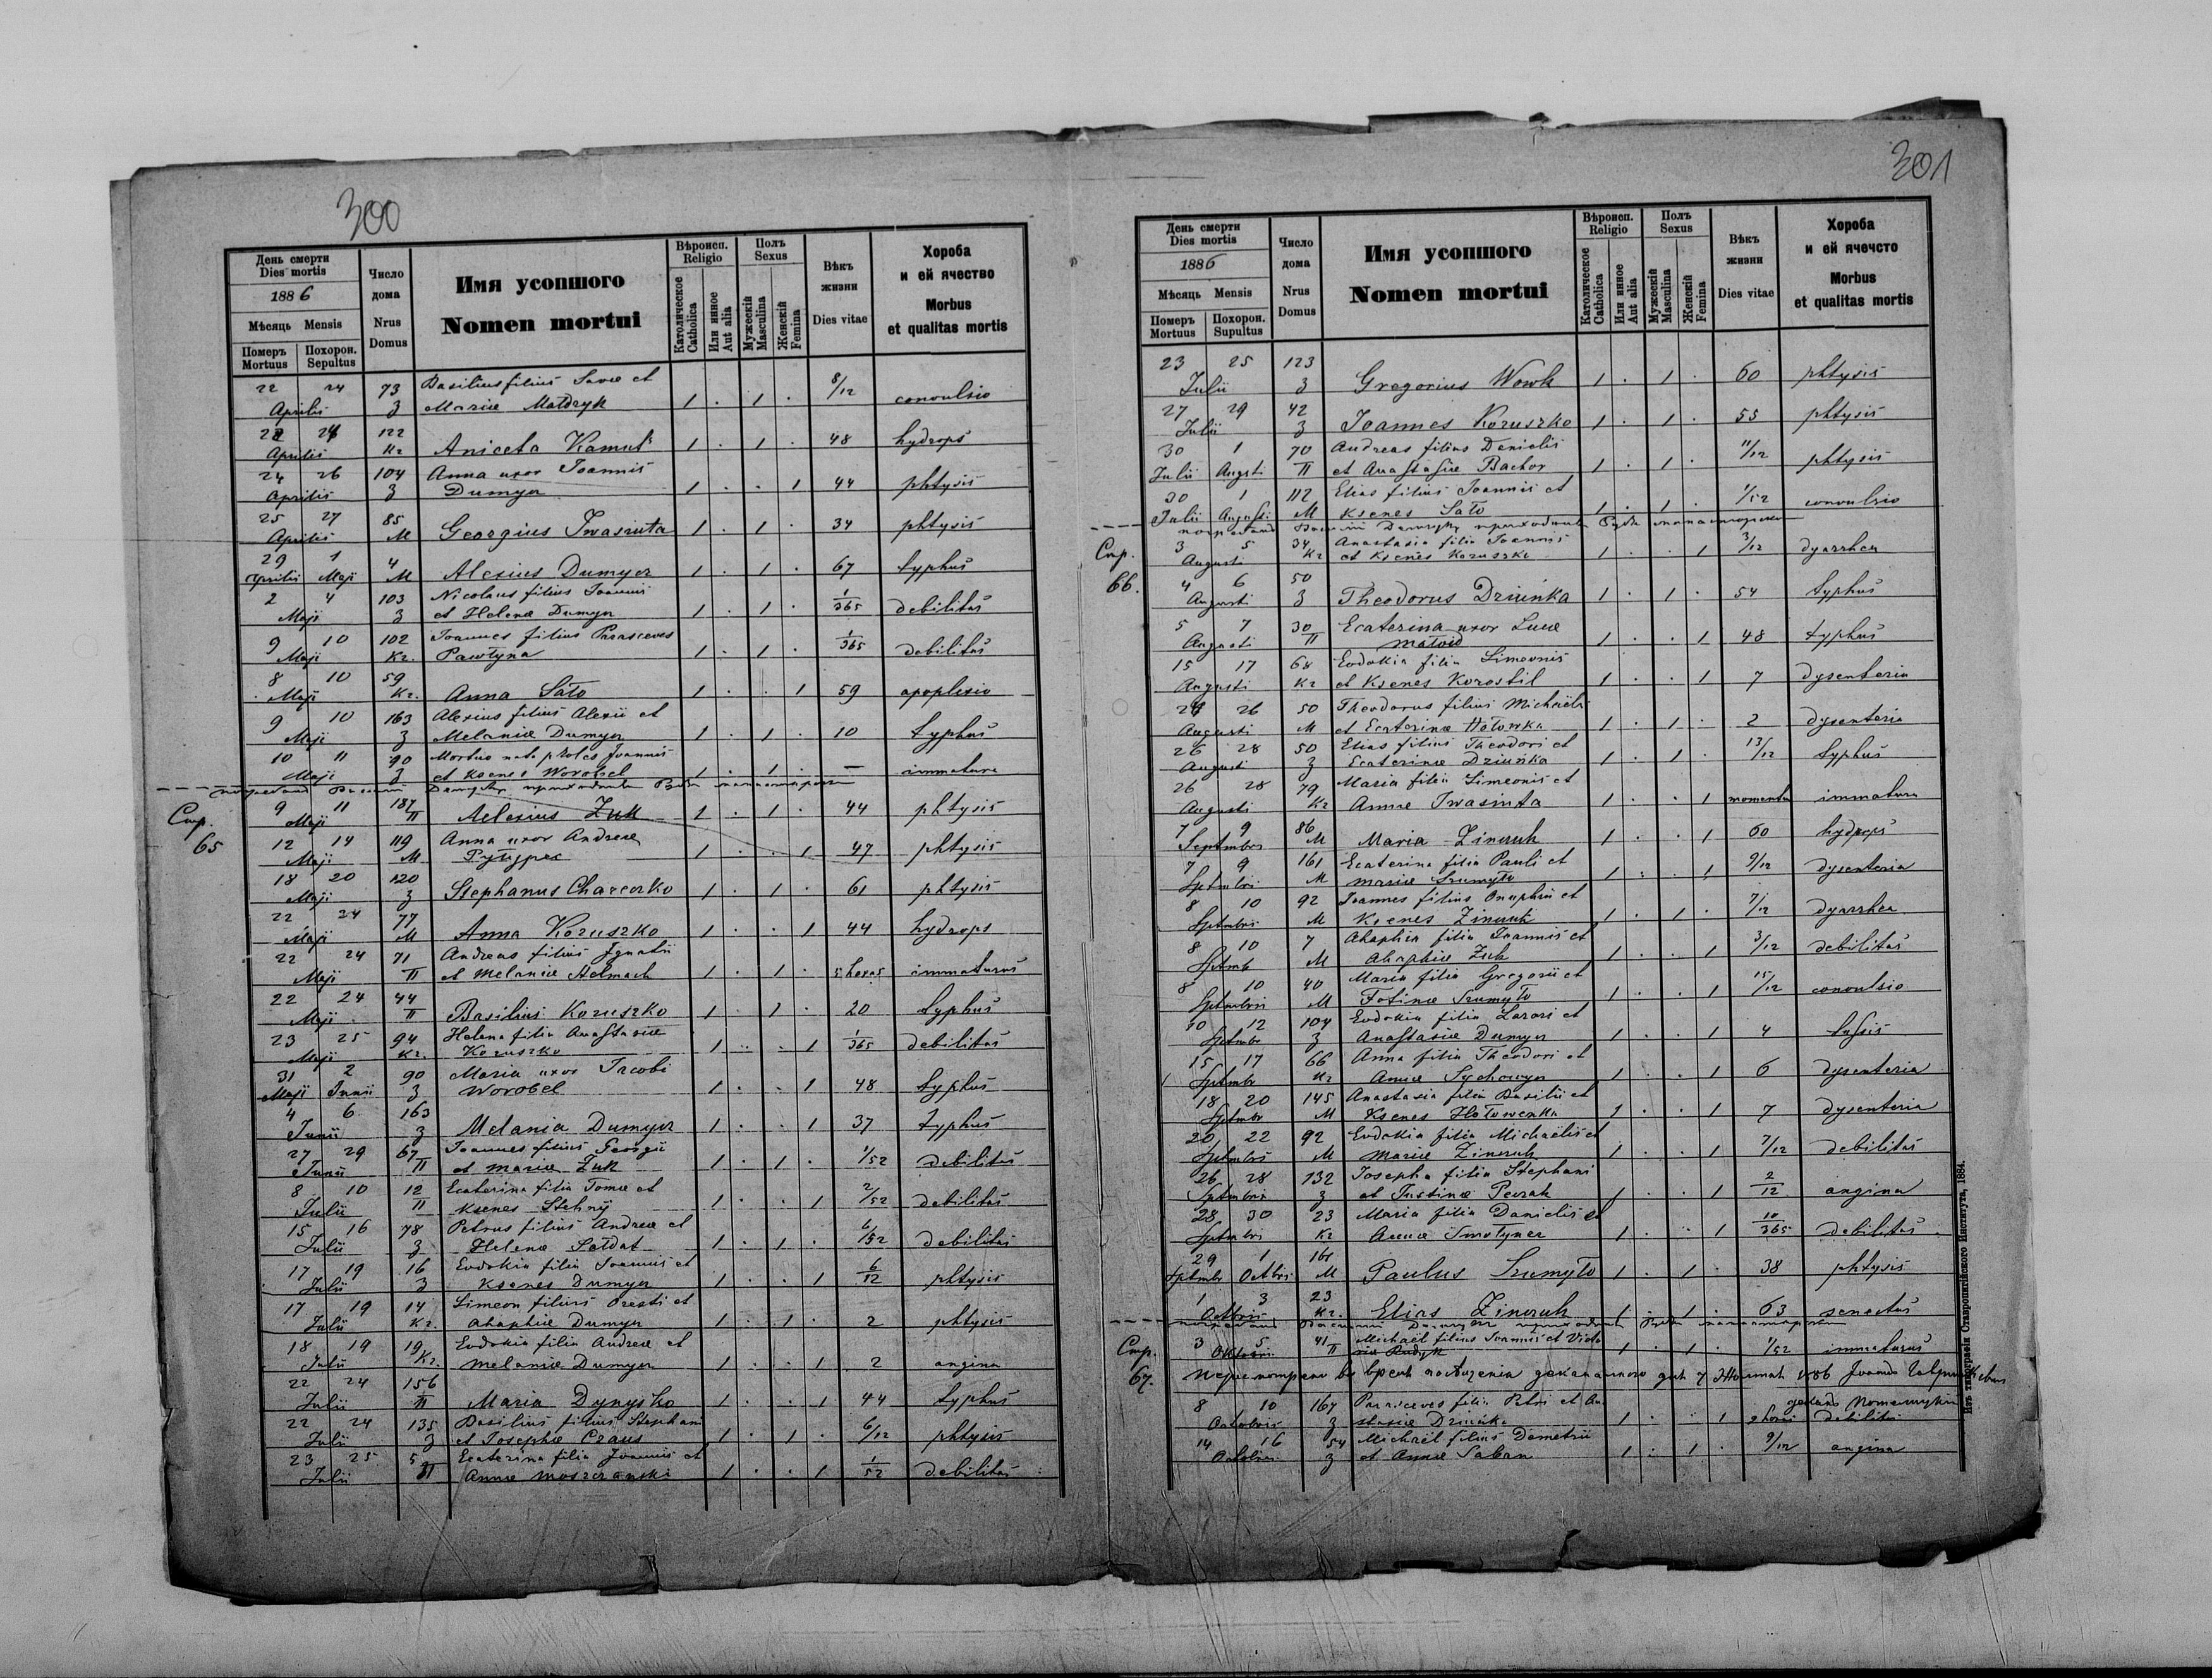 300
День смерти
Dies mortis
1886
Мѣсяць Mensis
Померъ Mortuus
Похорон. Sepultus
Число дома
Nrus Domus
Имя усопшого
Nomen mortui
Вѣроисп. Religio
Католическое Catholica
Или инное Aut alia
Полъ Sexus
Мужескій Masculina
Женскій Femina
Вѣкъ жизни
Dies vitae
Хороба
и ей ячество
Morbus
et qualitas mortis
22 24 73 Basilius filius Savae et 8/12
Aprilis З Mariae Matdryk 1 . 1 . convulsio
22 24 122
Aprilis Кг Aniceta Kamut 1 . 1 . 48 hydrops
24 26 104 Anna uxor Joannis
Aprilis З Dumyer 1 . . 1 44 phtysis
25 27 85
Aprilis М Georgius Iwasiuta 1 . 1 . 34 phtysis
29 1 4
Aprilis Maji М Alexius Dumyer 1 . 1 . 67 typhus
2 4 103 Nicolaus filius Joannis
Maji З et Helenae Dumyer 1 . 1 . 1/365 debilitas
9 10 102 Joannes filius Parasceves
Maji Кг. Pawlyna 1 . 1 . 1/365 debilitas
8 10 59
Maji Кг. Anna Sato 1 . . 1 59 apoplexio
9 10 163 Alexius filius Alexii et
Maji З Melaniae Dumyer 1 . 1 . 10 typhus
10 11 90 Mortuo nata proles Joannis
Maji З et Ksenes Worobel 1 . 1 . — immatura
Стр. 65
9 11 187
Maji П Alexius Zuk 1 . 1 . 44 phtysis
12 14 119 Anna uxor Andreae
Maji М 1 . . 1 47 phtysis
18 20 120
Maji З Stephanus Charcorko 1 . 1 . 61 phtysis
22 24 77
Maji М Anna Koruszko 1 . . 1 44 hydrops
22 24 71 Andreas filius Ignatii
Maji П et Melaniae Helmach 1 . 1 . 5 horas immaturus
22 24 44
Maji П Basilius Koruszko 1 . 1 . 20 typhus
23 25 94 Helena filia Anastasiae
Maji Кг. Koruszko 1 . . 1 1/365 debilitas
31 2 90 Maria uxor Jacobi
Maji Junii З Worobel 1 . . 1 48 typhus
4 6 163
Junii З Melania Dumyer 1 . . 1 37 typhus
27 29 67 Joannes filius Georgii
Junii П et Mariae Zuk 1 . 1 . 1/52 debilitas
8 10 12 Ecaterina filia Tomae et
Julii П Ksenes Stehnij 1 . . 1 2/52 debilitas
15 16 78 Petrus filius Andreae et
Julii З Helenae Soldat 1 . 1 . 6/52 debilitas
17 19 16 Eudokia filia Joannis et
Julii З Ksenes Dumyer 1 . . 1 6/12 phtysis
17 19 14 Simeon filius Oresti et
Julii Кг. Ahaphiae Dumyer 1 . 1 . 2 phtysis
18 19 19 Eudokia filia Andreae et
Julii Кг. Melaniae Dumyer 1 . . 1 2 angina
22 24 156
Julii П Maria Dynysko 1 . . 1 44 typhus
22 24 135 Basilius filius Stephani
Julii З et Josephae Craus 1 . 1 . 6/12 phtysis
23 25 5 Ecaterina filia Joannis et
Julii П Annae Moszczanski 1 . . 1 1/52 debilitas
301
День смерти
Dies mortis
1886
Мѣсяць Mensis
Померъ Mortuus
Похорон. Supultus
Число дома
Nrus Domus
Имя усопшого
Nomen mortui
Вѣроисп. Religio
Католическое Catholica
Или инное Aut alia
Полъ Sexus
Мужескій Masculina
Женскій Femina
Вѣкъ жизни
Dies vitae
Хороба
и ей ячечсто
Morbus
et qualitas mortis
23 25 123
Julii З Gregorius Wowk 1 . 1 . 60 phtysis
27 29 42
Julii З Joannes Koruszko 1 . 1 . 55 phtysis
30 1 70 Andreas filius Danielis
Julii Augsti П et Anastasiae Bachor 1 . 1 . 11/12 phtysis
30 1 112 Elias filius Joannis et
Julii Augusti М Ksenes Sato 1 . 1 . 1/52 convulsio
Стр. 66.
3 5 34 Anastasia filia Joannis
Augusti Кг et Ksenes Koruszko 1 . . 1 3/12 dyarrhea
4 6 50
Augusti З Theodorus Dziuńka 1 . 1 . 54 typhus
5 7 30 Ecaterina uxor Lucae
Augusti П 1 . . 1 48 typhus
15 17 68 Eudokia filia Simeonis
Augusti Кг et Ksenes Korostil 1 . . 1 7 dysenteria
24 26 50 Theodorus filius Michaëlis
Augusti М et Ecaterinae Hotowka 1 . 1 . 2 dysenteria
26 28 50 Elias filius Theodori et
Augusti З Ecaterinae Dziuńka 1 . 1 . 13/12 typhus
26 28 79 Maria filia Simeonis et
Augusti Кг Annae Iwasiuta 1 . . 1 momenta immatura
7 9 86
Septmbris М Maria Zincruk 1 . . 1 60 hydrops
7 9 161 Ecaterina filia Pauli et
Sptmbri М Mariae Szumyto 1 . . 1 9/12 dysenteria
8 10 92 Joannes filius Onuphrii et
Sptmbri М Ksenes Zincruk 1 . 1 . 7/12 dyarrhea
8 10 7 Ahaphia filia Joannis et
Sptmb М Ahaphiae Zuk 1 . . 1 3/12 debilitas
8 10 40 Maria filia Gregorii et
Sptmbris М Fotinae Szumyto 1 . . 1 15/12 convulsio
10 12 104 Eudokia filia Lazari et
Sptmbr З Anastasiae Dumyer 1 . . 1 4 tussis
15 17 66 Anna filia Theodori et
Sptmbr Кг Annae Sychowyer 1 . . 1 6 dysenteria
18 20 145 Anastasia filia Basilii et
Sptmbr М Ksenes Hotowenka 1 . . 1 7 dysenteria
20 22 92 Eudokia filia Michaëlis et
Sptmbris М Mariae Zincruk 1 . . 1 7/12 debilitas
26 28 132 Josepha filia Stephani
Sptmbris З et Justinae Peczak 1 . . 1 2/12 angina
28 30 23 Maria filia Danielis et
Sptmbri Кг Annae Smotyner 1 . . 1 10/365 debilitas
29 1 161
Sptmbr Octbris М Paulus Szumyto 1 . 1 . 38 phtysis
1 3 23
Octbris Кг. Elias Zincruk 1 . 1 . 63 senectus
Стр. 67.
3 5 41 Michaël filius Joannis et Victo
Oktobris П riae Rudyk 1 . 1 . 1/52 immaturus
8 10 167 Parasceves filia Petri et Ana
Octobris З stasiae Dziuńka 1 . . 1 2 horas debilitas
14 16 54 Michaël filius Demetrii
Octobris З et Annae Saban 1 . 1 . 9/12 angina
Изъ типографіи Ставропигійского Института, 1884.